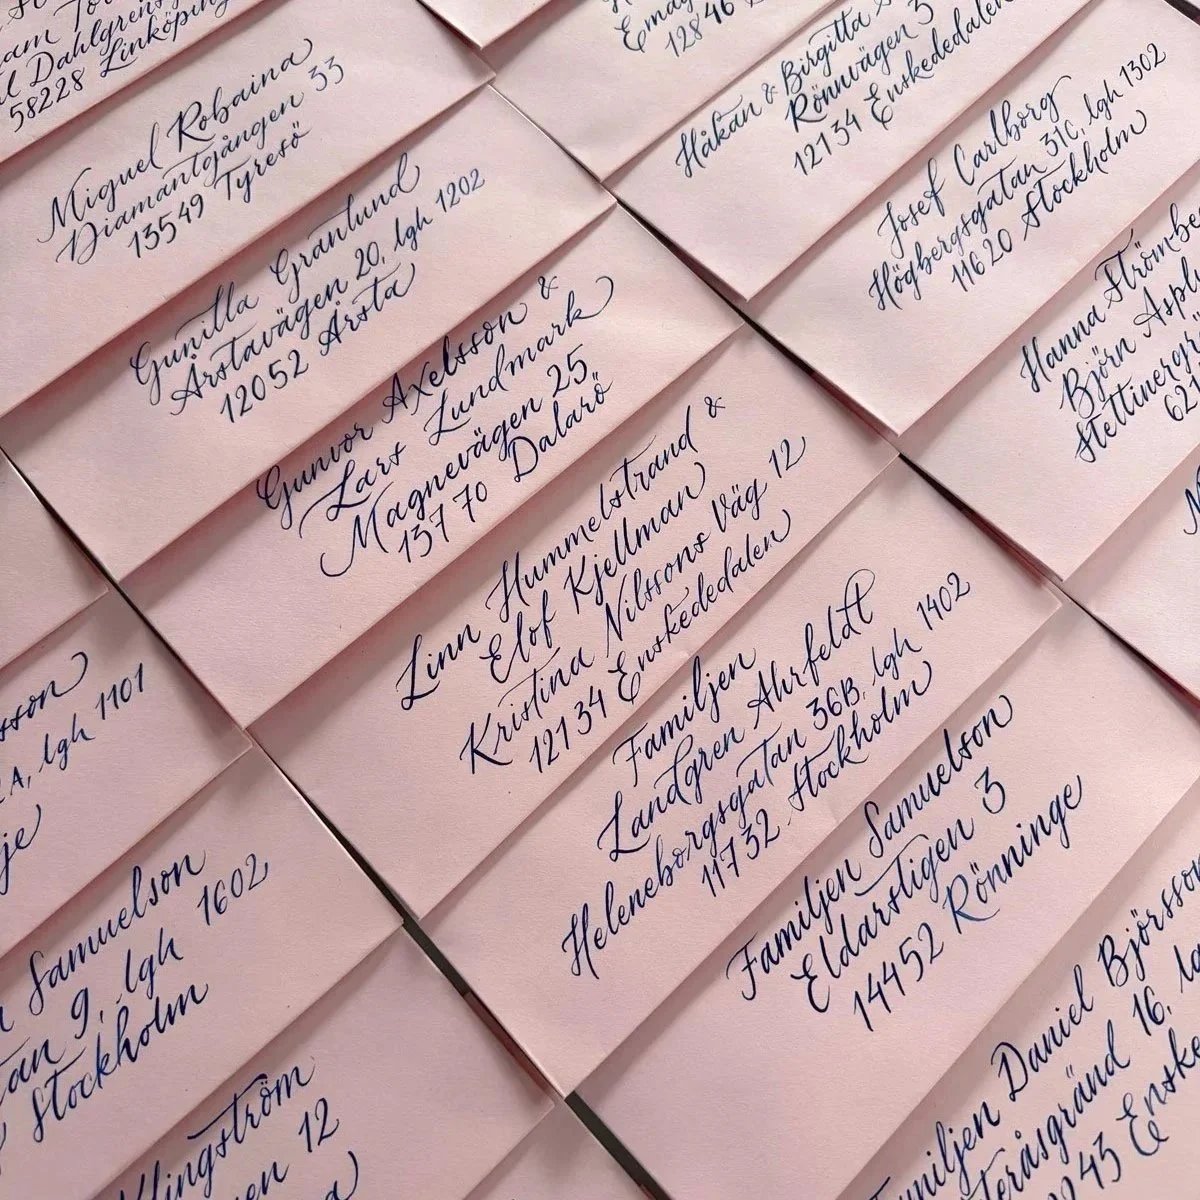 58228 Linköping
Miguel Robaina
Diamantgången 33
13549 Tyresö
Gunilla Granlund
Årstavägen 20, lgh 1202
12052 Årsta
Gunvor Axelsson &
Lars Lundmark
Magnevägen 25
137 70 Dalarö
Linn Hummelstrand &
Elof Kjellman
Kristina Nilssons Väg 12
121 34 Enskededalen
Familjen
Landgren Ahrfeldt
Heleneborgsgatan 36B, lgh 1402
117 32 Stockholm
Familjen Samuelson
Eldarstigen 3
14452 Rönninge
128 46
Håkan & Birgitta
Rönnvägen 3
121 34 Enskededalen
Josef Carlborg
Högbergsgatan 31C, lgh 1302
116 20 Stockholm
Hanna
Björn
lgh 1101
Samuelson
9, lgh 1602
Stockholm
Klingström
12
Daniel
16,